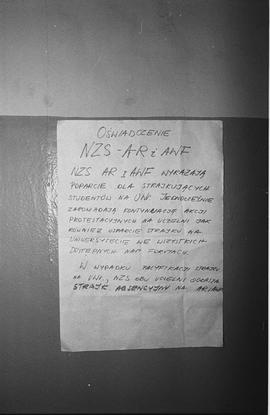 OŚWIADCZENIE
NZS - AR i AWF
NZS AR i AWF WYRAŻAJĄ
POPARCIE DLA STRAJKUJĄCYCH
STUDENTÓW NA UWr. JEDNOCZEŚNIE
ZAPOWIADAJĄ KONTYNUACJĘ AKCJI
PROTESTACYJNYCH NA UCZELNI JAK
RÓWNIEŻ WSPARCIE STRAJKU NA
UNIWERSYTECIE WE WSZYSTKICH
DOSTĘPNYCH NAM FORMACH.
W WYPADKU PACYFIKACJI STRAJKU
NA UWr., NZS OBU UCZELNI OGŁASZA
STRAJK ABSENCYJNY NA AR i AWF